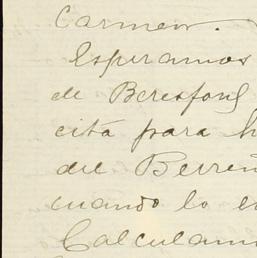 Carmen.
Esperamos
de Beresford
cita para h
del Berre
cuando lo e
Calculam